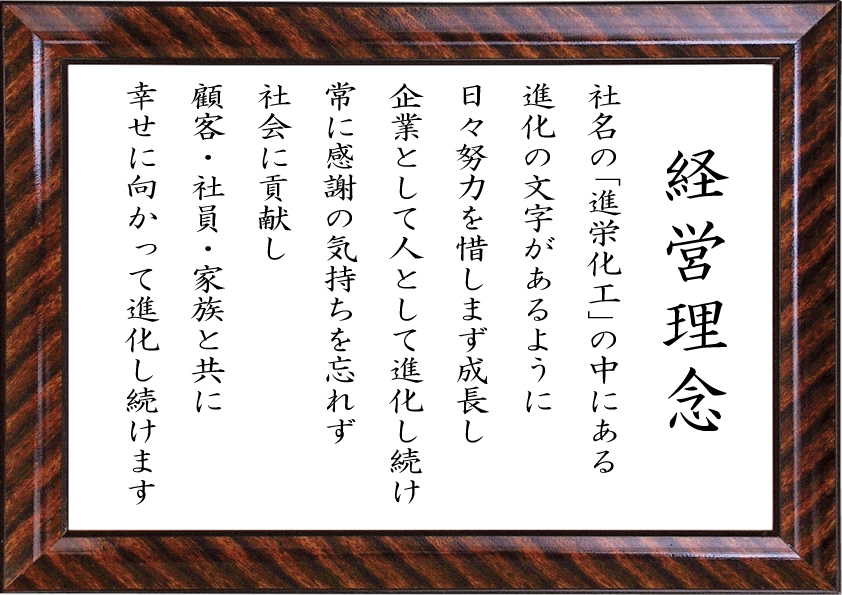 経営理念
社名の「進栄化工」の中にある
進化の文字があるように
日々努力を惜しまず成長し
企業として人として進化し続け
常に感謝の気持ちを忘れず
社会に貢献し
顧客・社員・家族と共に
幸せに向かって進化し続けます